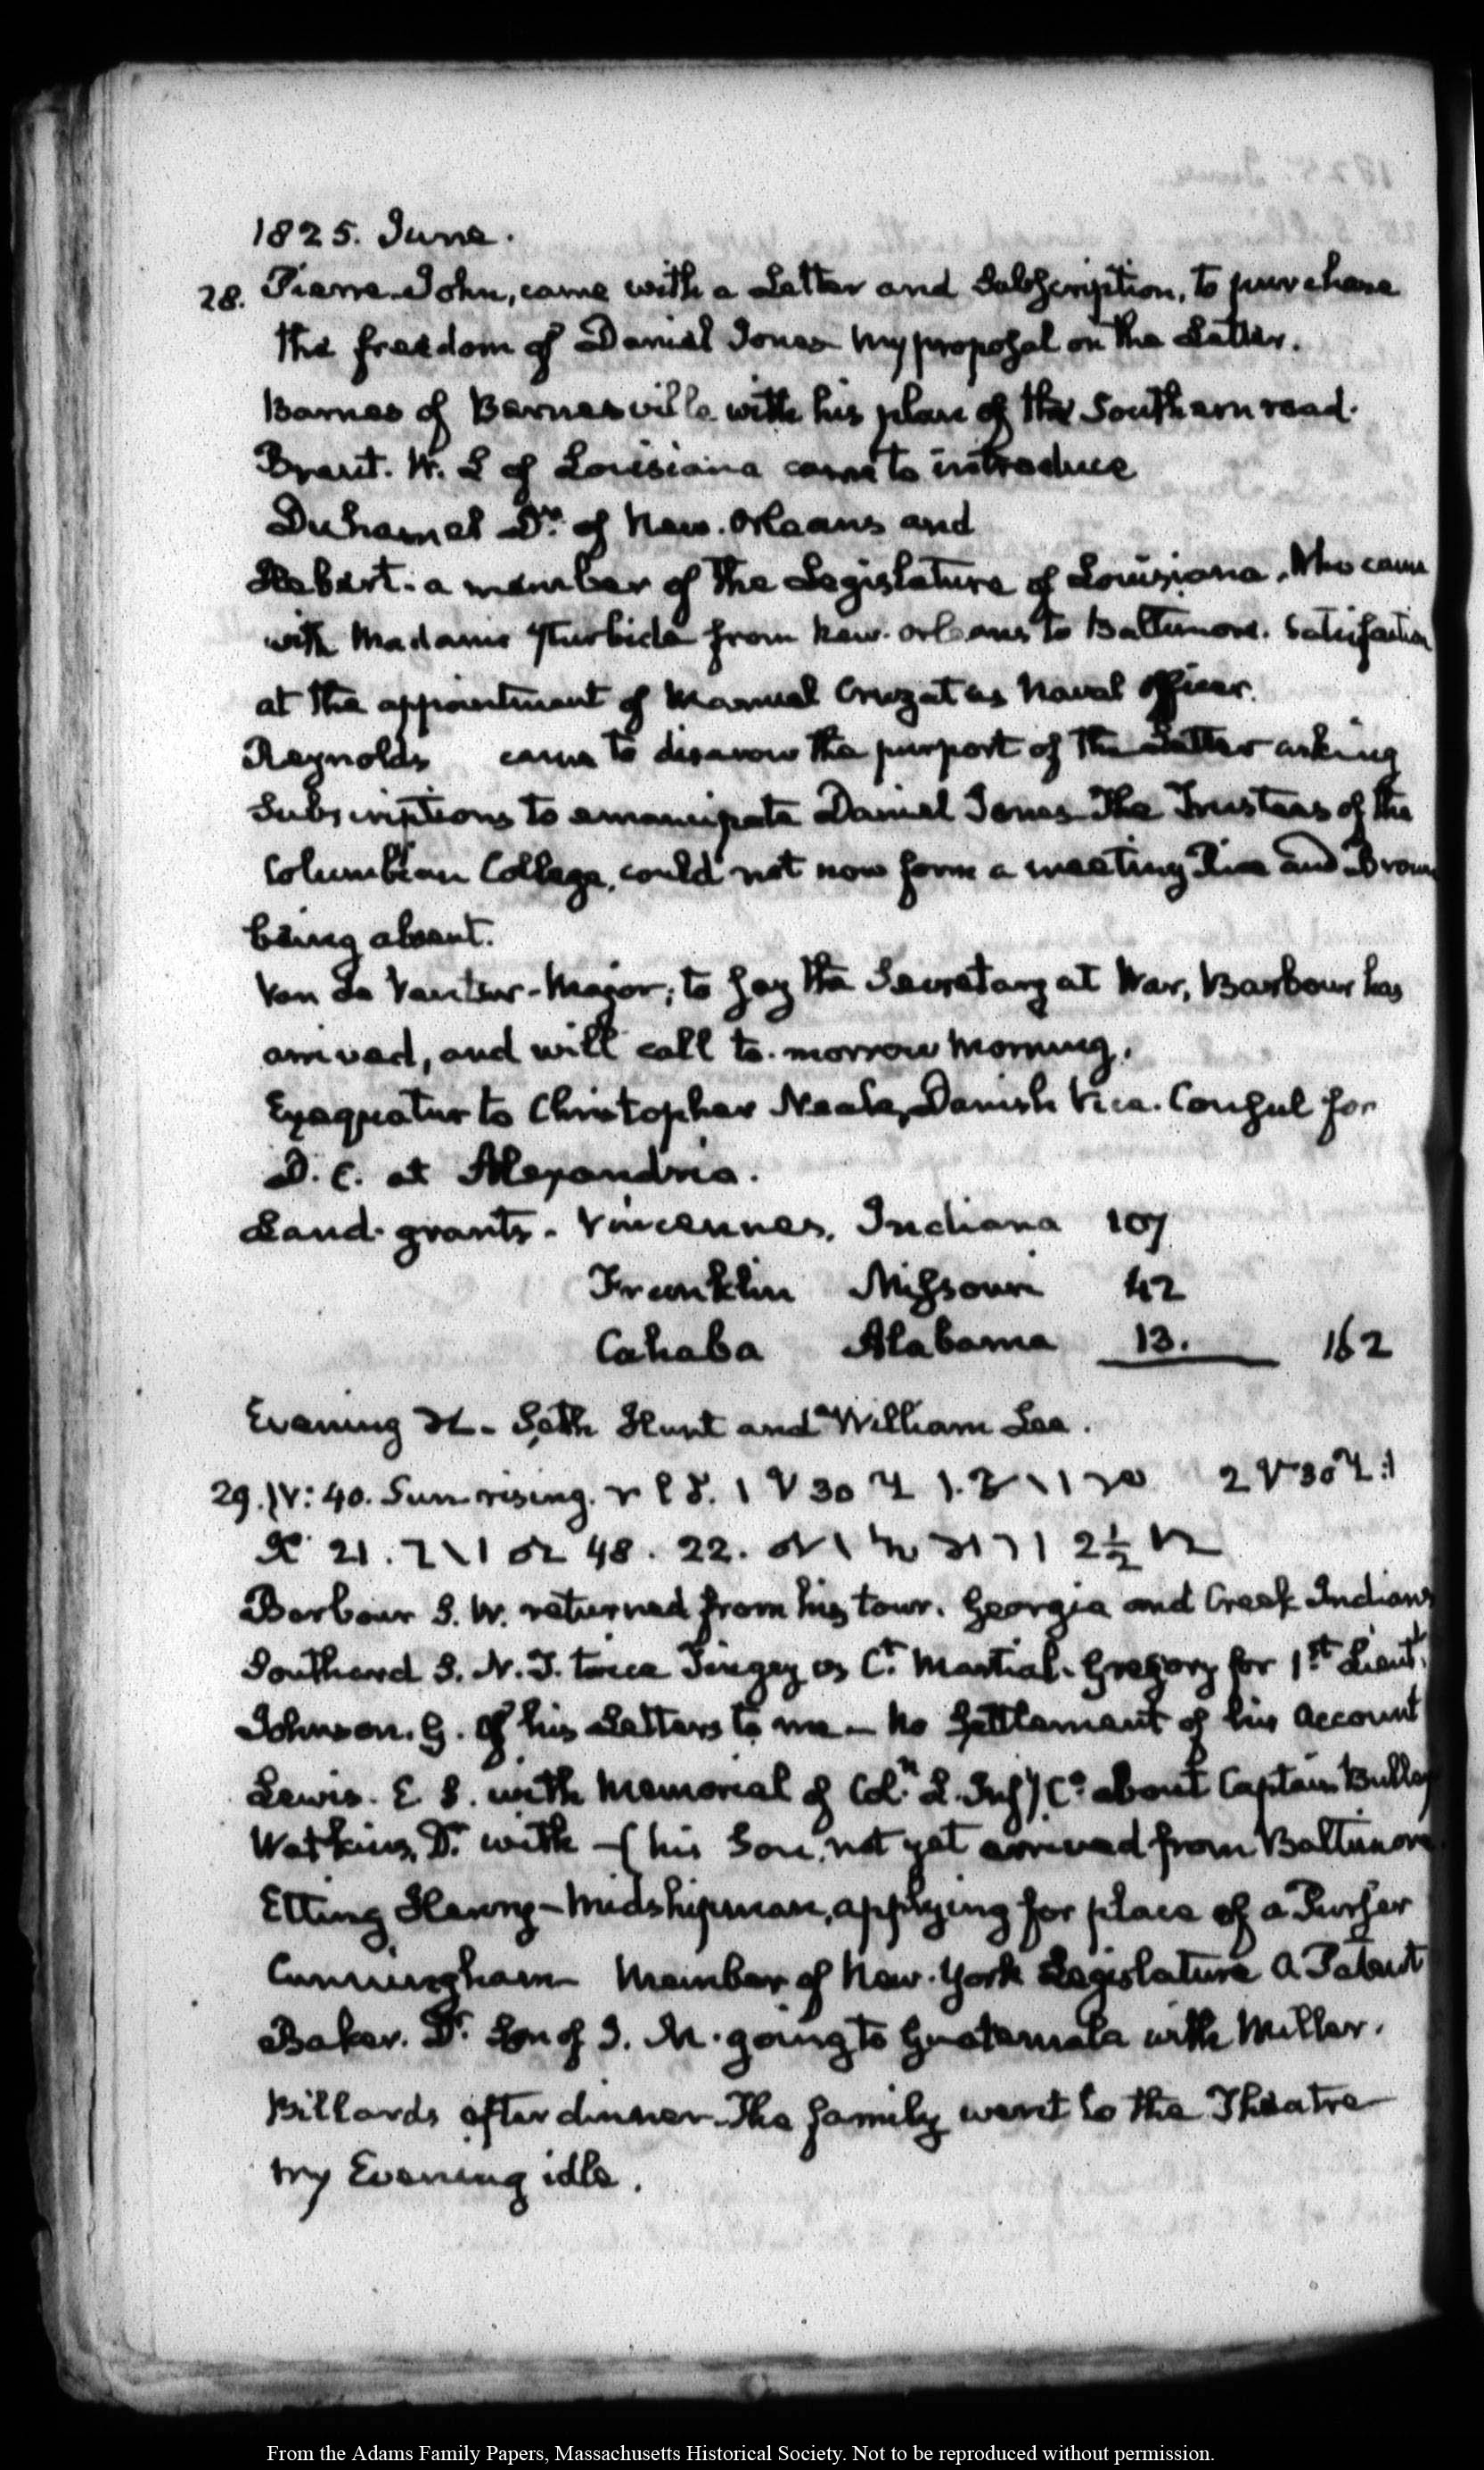 1825. June.
28. Pierre John, came with a Letter and Subscription, to purchase
the freedom of Daniel Jones my proposal on the Letter.
Barnes of Barnesville with his plan of the Southern road.
Brent. W. L of Louisiana came to introduce
Duhamel Dr. of New. Orleans and
Hebert. a member of the Legislature of Louisiana. Who came
with Madame Yturbide from New. Orleans to Baltimore. Satisfaction
at the appointment of Manuel Cruzat as Naval Officer.
Reynolds came to disavow the purport of the Letter asking
Subscriptions to emancipate Daniel Jones The Trustees of the
Columbian College, could not now form a meeting Rice and Brown
being absent.
Van de Venter-Major; to say the Secretary at War, Barbour has
arrived, and will call to-morrow morning.
Exequatur to Christopher Neale, Danish Vice-Consul for
D. C. at Alexandria.
Land-grants. Vincennes, Indiana 107
Franklin Missouri 42
Cahaba Alabama 13. 162
Evening Seth Hunt and William Lee.
29. IV: 40. Sun rising. 1 30 2 30
21. 48. 22. 2½
Barbour S. W. returned from his tour. Georgia and Creek Indians
Southard S. N. J. twice Tingey as Ct. Martial. Gregory for 1st Lieut.
Johnson. G. of his Letters to me — No Settlement of his Account
Lewis. E. S. with Memorial of Coln. L. about Captain
Watkins, Dr. with — (his Son, not yet arrived from Baltimore
Etting Henry — Midshipman, applying for place of a Purser
Cunningham Member of New-York Legislature A Patent
Baker. Dr. Son of J. M. going to Guatemala with Miller.
Billards after dinner. The family went to the Theatre
my Evening idle.
From the Adams Family Papers, Massachusetts Historical Society. Not to be reproduced without permission.